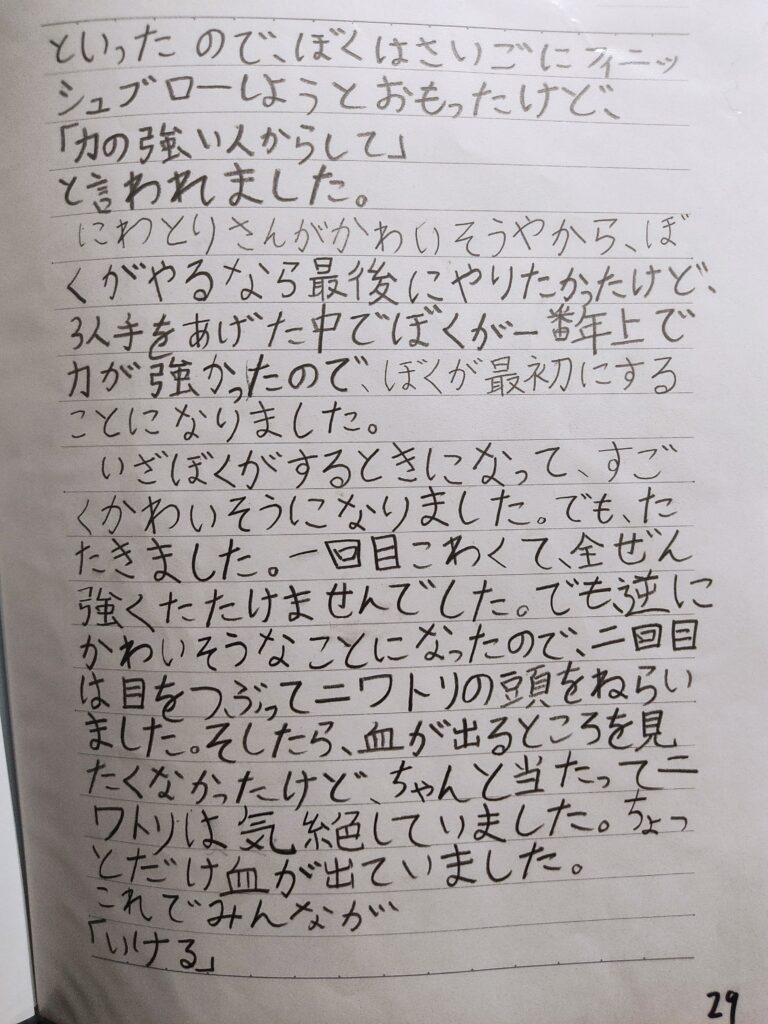 といったので、ぼくはさいごにフィニッ
シュブローしようとおもったけど、
「力の強い人からして」
と言われました。
にわとりさんがかわいそうやから、ぼ
くがやるなら最後にやりたかったけど、
3人手をあげた中でぼくが一番年上で
力が強かったので、ぼくが最初にする
ことになりました。
いざぼくがするときになって、すご
くかわいそうになりました。でも、た
たきました。一回目こわくて、全ぜん
強くたたけませんでした。でも、逆に
かわいそうなことになったので、二回目
は目をつぶってニワトリの頭をねらい
ました。そしたら、血が出るところを見
たくなかったけど、ちゃんと当たってニ
ワトリは気絶していました。ちょっ
とだけ血が出ていました。
これでみんなが
「いける」
29